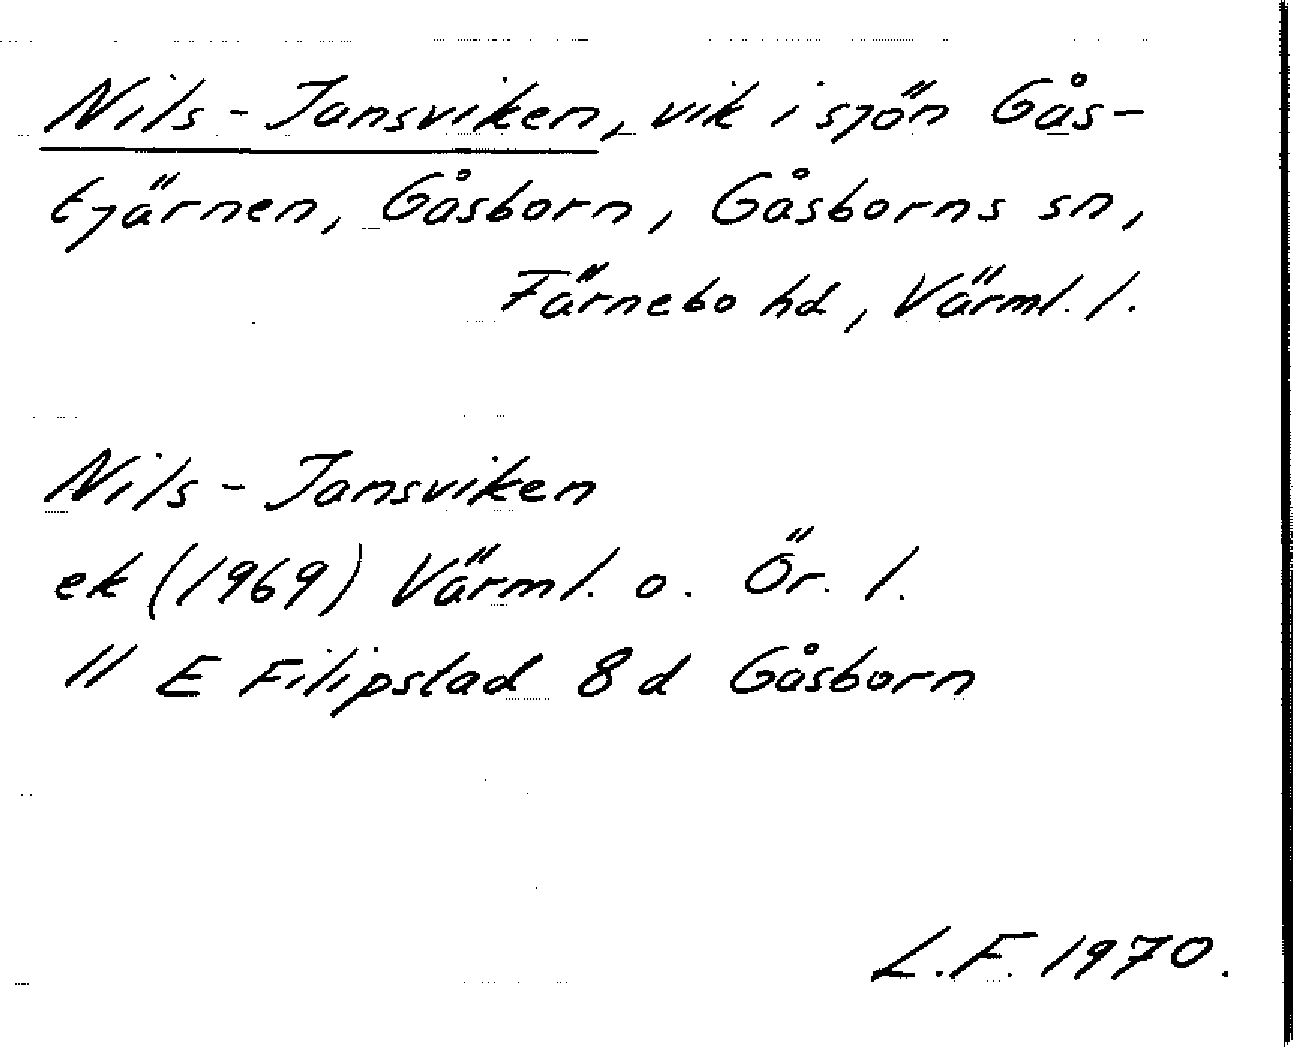 Nils-Jansviken, vik i sjön Gås-
tjärnen, Gåsborn, Gåsborns sn,
Färnebo hd, Värml. l.
Nils-Jansviken
ek (1969) Värml. o. Ör. l.
11 E Filipstad 8 d Gåsborn
L.F. 1970.